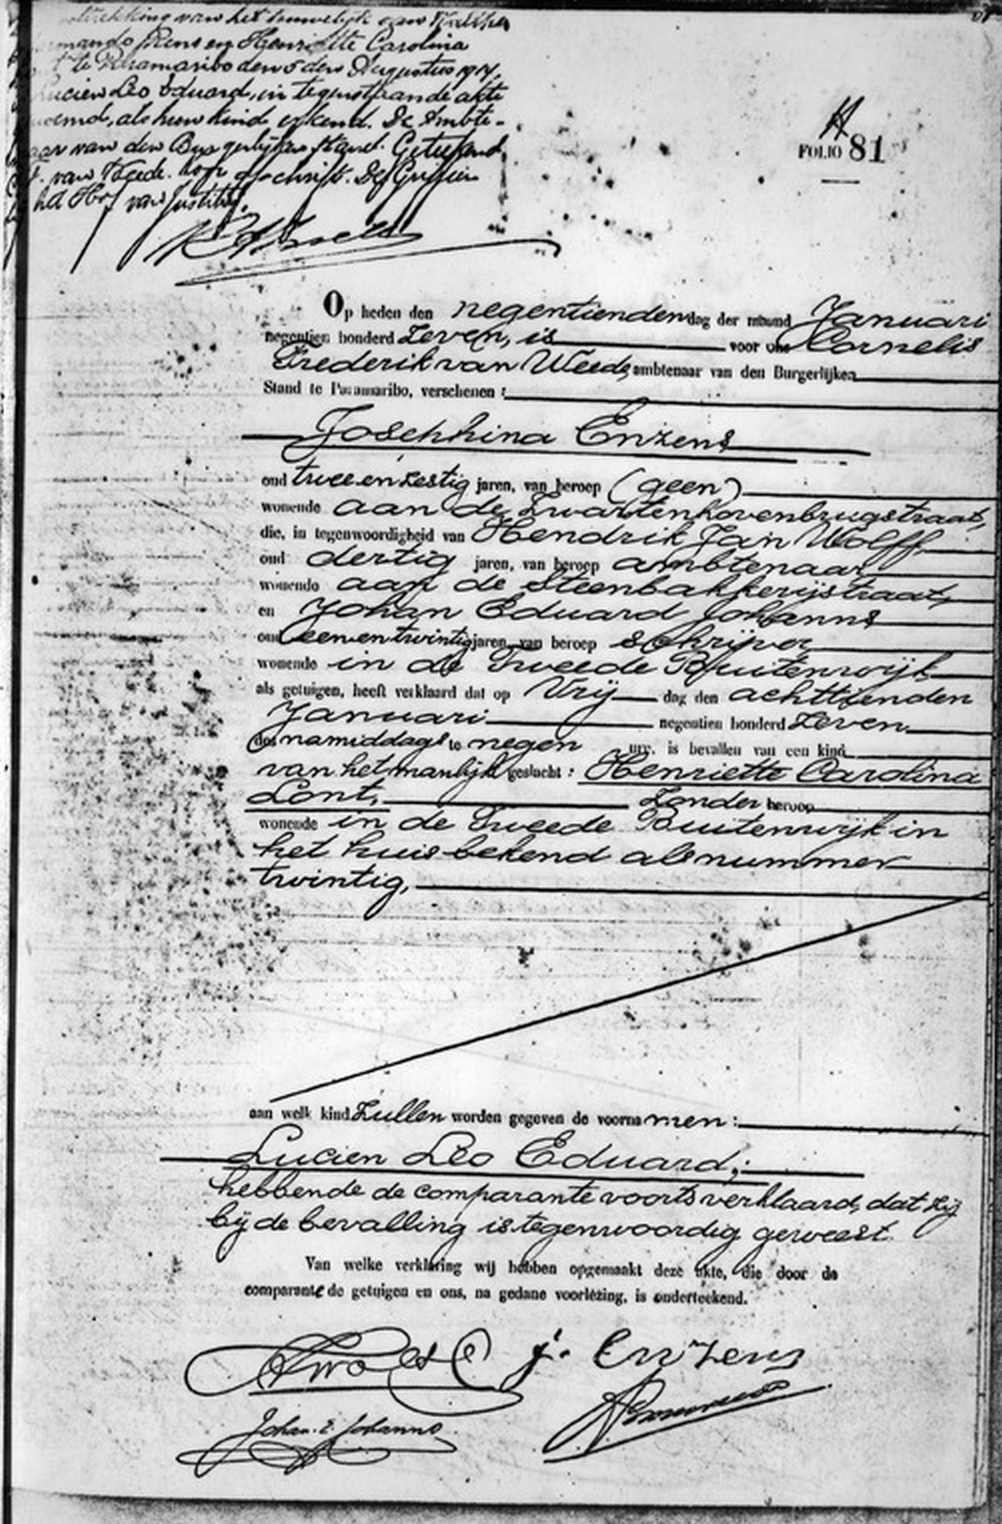 voltrekking van het huwelijk van
Prins en Henriette Carolina
te Paramaribo den 5den Augustus
Lucien Leo Eduard, in tegenstaande akte
als hun kind erkend. De Ambte-
van den Burgerlijken stand. Geteekend
van Weede. Voor afschrift. De Griffier
het Hof van Justitie.
FOLIO 81
Op heden den negentienden dag der maand Januari
negentien honderd Zeven, is voor ons Cornelis
Frederik van Weede, ambtenaar van den Burgerlijken
Stand te Paramaribo, verschenen:
Josephina Enzens
oud twee en zestig jaren, van beroep (geen)
wonende aan de Zwartenhovenbrugstraat,
die, in tegenwoordigheid van Hendrik Jan Wolff
oud dertig jaren, van beroep ambtenaar
wonende aan de Steenbakkerijstraat,
en Johan Eduard Johanns
oud eenentwintig jaren, van beroep schrijver
wonende in de Tweede Buitenwijk
als getuigen, heeft verklaard dat op Vrij dag den achttienden
Januari negentien honderd Zeven
des namiddags te negen ure, is bevallen van een kind
van het manlijk geslacht: Henriette Carolina
Lont, Zonder beroep
wonende in de Tweede Buitenwijk in
het huis bekend als nummer
twintig,
aan welk kind Zullen worden gegeven de voornamen:
Lucien Leo Eduard;
hebbende de comparante voorts verklaard, dat zij
bij de bevalling is tegenwoordig geweest.
Van welke verklaring wij hebben opgemaakt deze akte, die door de
comparante de getuigen en ons, na gedane voorlezing, is onderteekend.
J. Enzens
Johan. E. Johanns